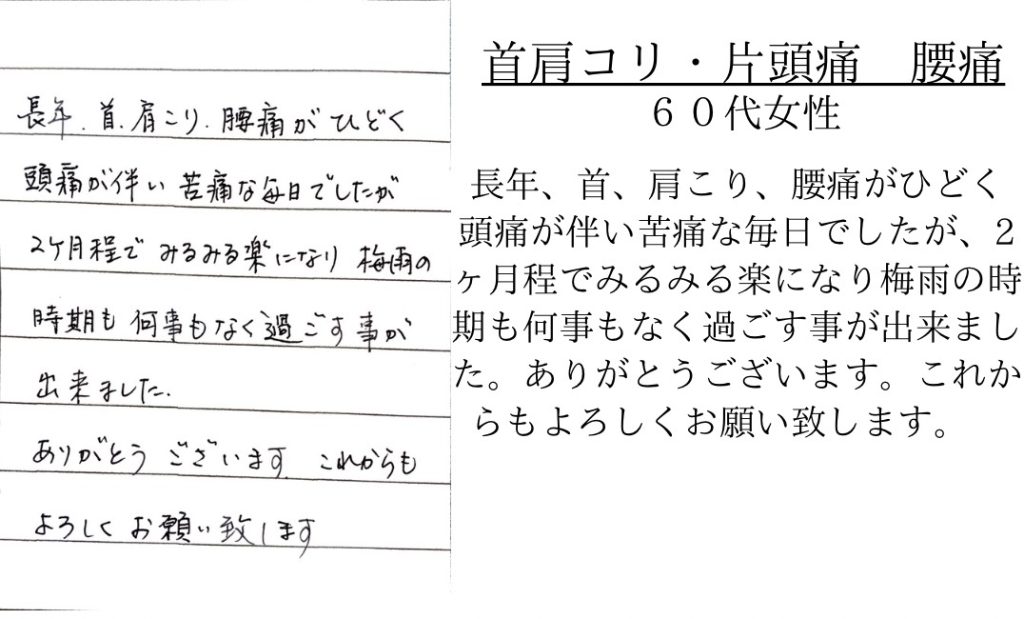 長年、首、肩こり、腰痛がひどく
頭痛が伴い苦痛な毎日でしたが
2ケ月程でみるみる楽になり梅雨の
時期も何事もなく過ごす事が
出来ました。
ありがとうございます。これからも
よろしくお願い致します
首肩コリ・片頭痛　腰痛
６０代女性
長年、首、肩こり、腰痛がひどく
頭痛が伴い苦痛な毎日でしたが、2
ヶ月程でみるみる楽になり梅雨の時
期も何事もなく過ごす事が出来まし
た。ありがとうございます。これか
らもよろしくお願い致します。